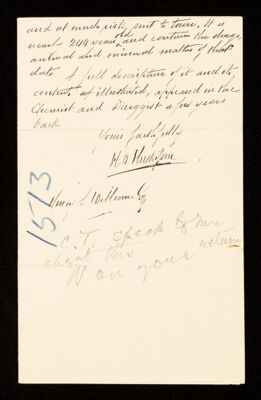 and at much risk, sent to town. It is
nearly 244 years old and contains the drugs,
animal and mineral matter of that
date. A full description of it and its
contents as illustrated, appeared in the
Chemist and Druggist a few years
back
Yours faithfully
1513
Wellcome Esq
C.T. speak to me
about this
on your return